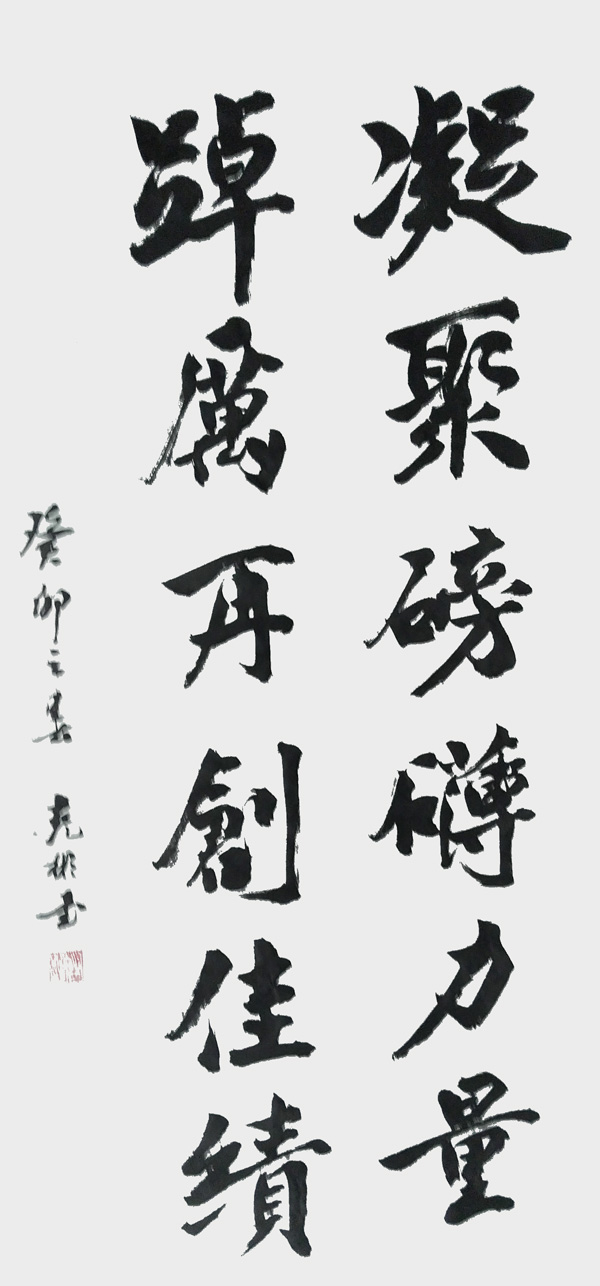 凝聚磅礴力量
踔厲再創佳績
癸卯之春 克彬书